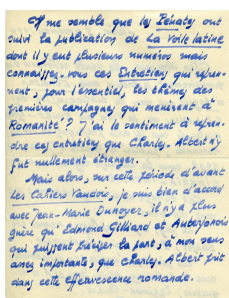 Il me semble que les Péhaéry ont
suivi la publication de La Voile latine
dont il y eut plusieurs numéros mais
connaissez-vous ces Entretiens qui repren-
nent, pour l'essentiel, les thèmes des
premières campagnes qui menèrent à
Romanité ? J'ai le sentiment à repren-
dre ces entretiens que Charles-Albert n'y
fut nullement étranger.
Mais alors, sur cette période d'avant
les Cahiers Vaudois, je suis bien d'accord
avec Jean-Marie Dunoyer, il n'y a plus
guère qu'Edmond Gilliard et Auberjonois
qui puissent préciser la part, à mon sens
assez importante, que Charles-Albert prit
dans cette effervescence romande.